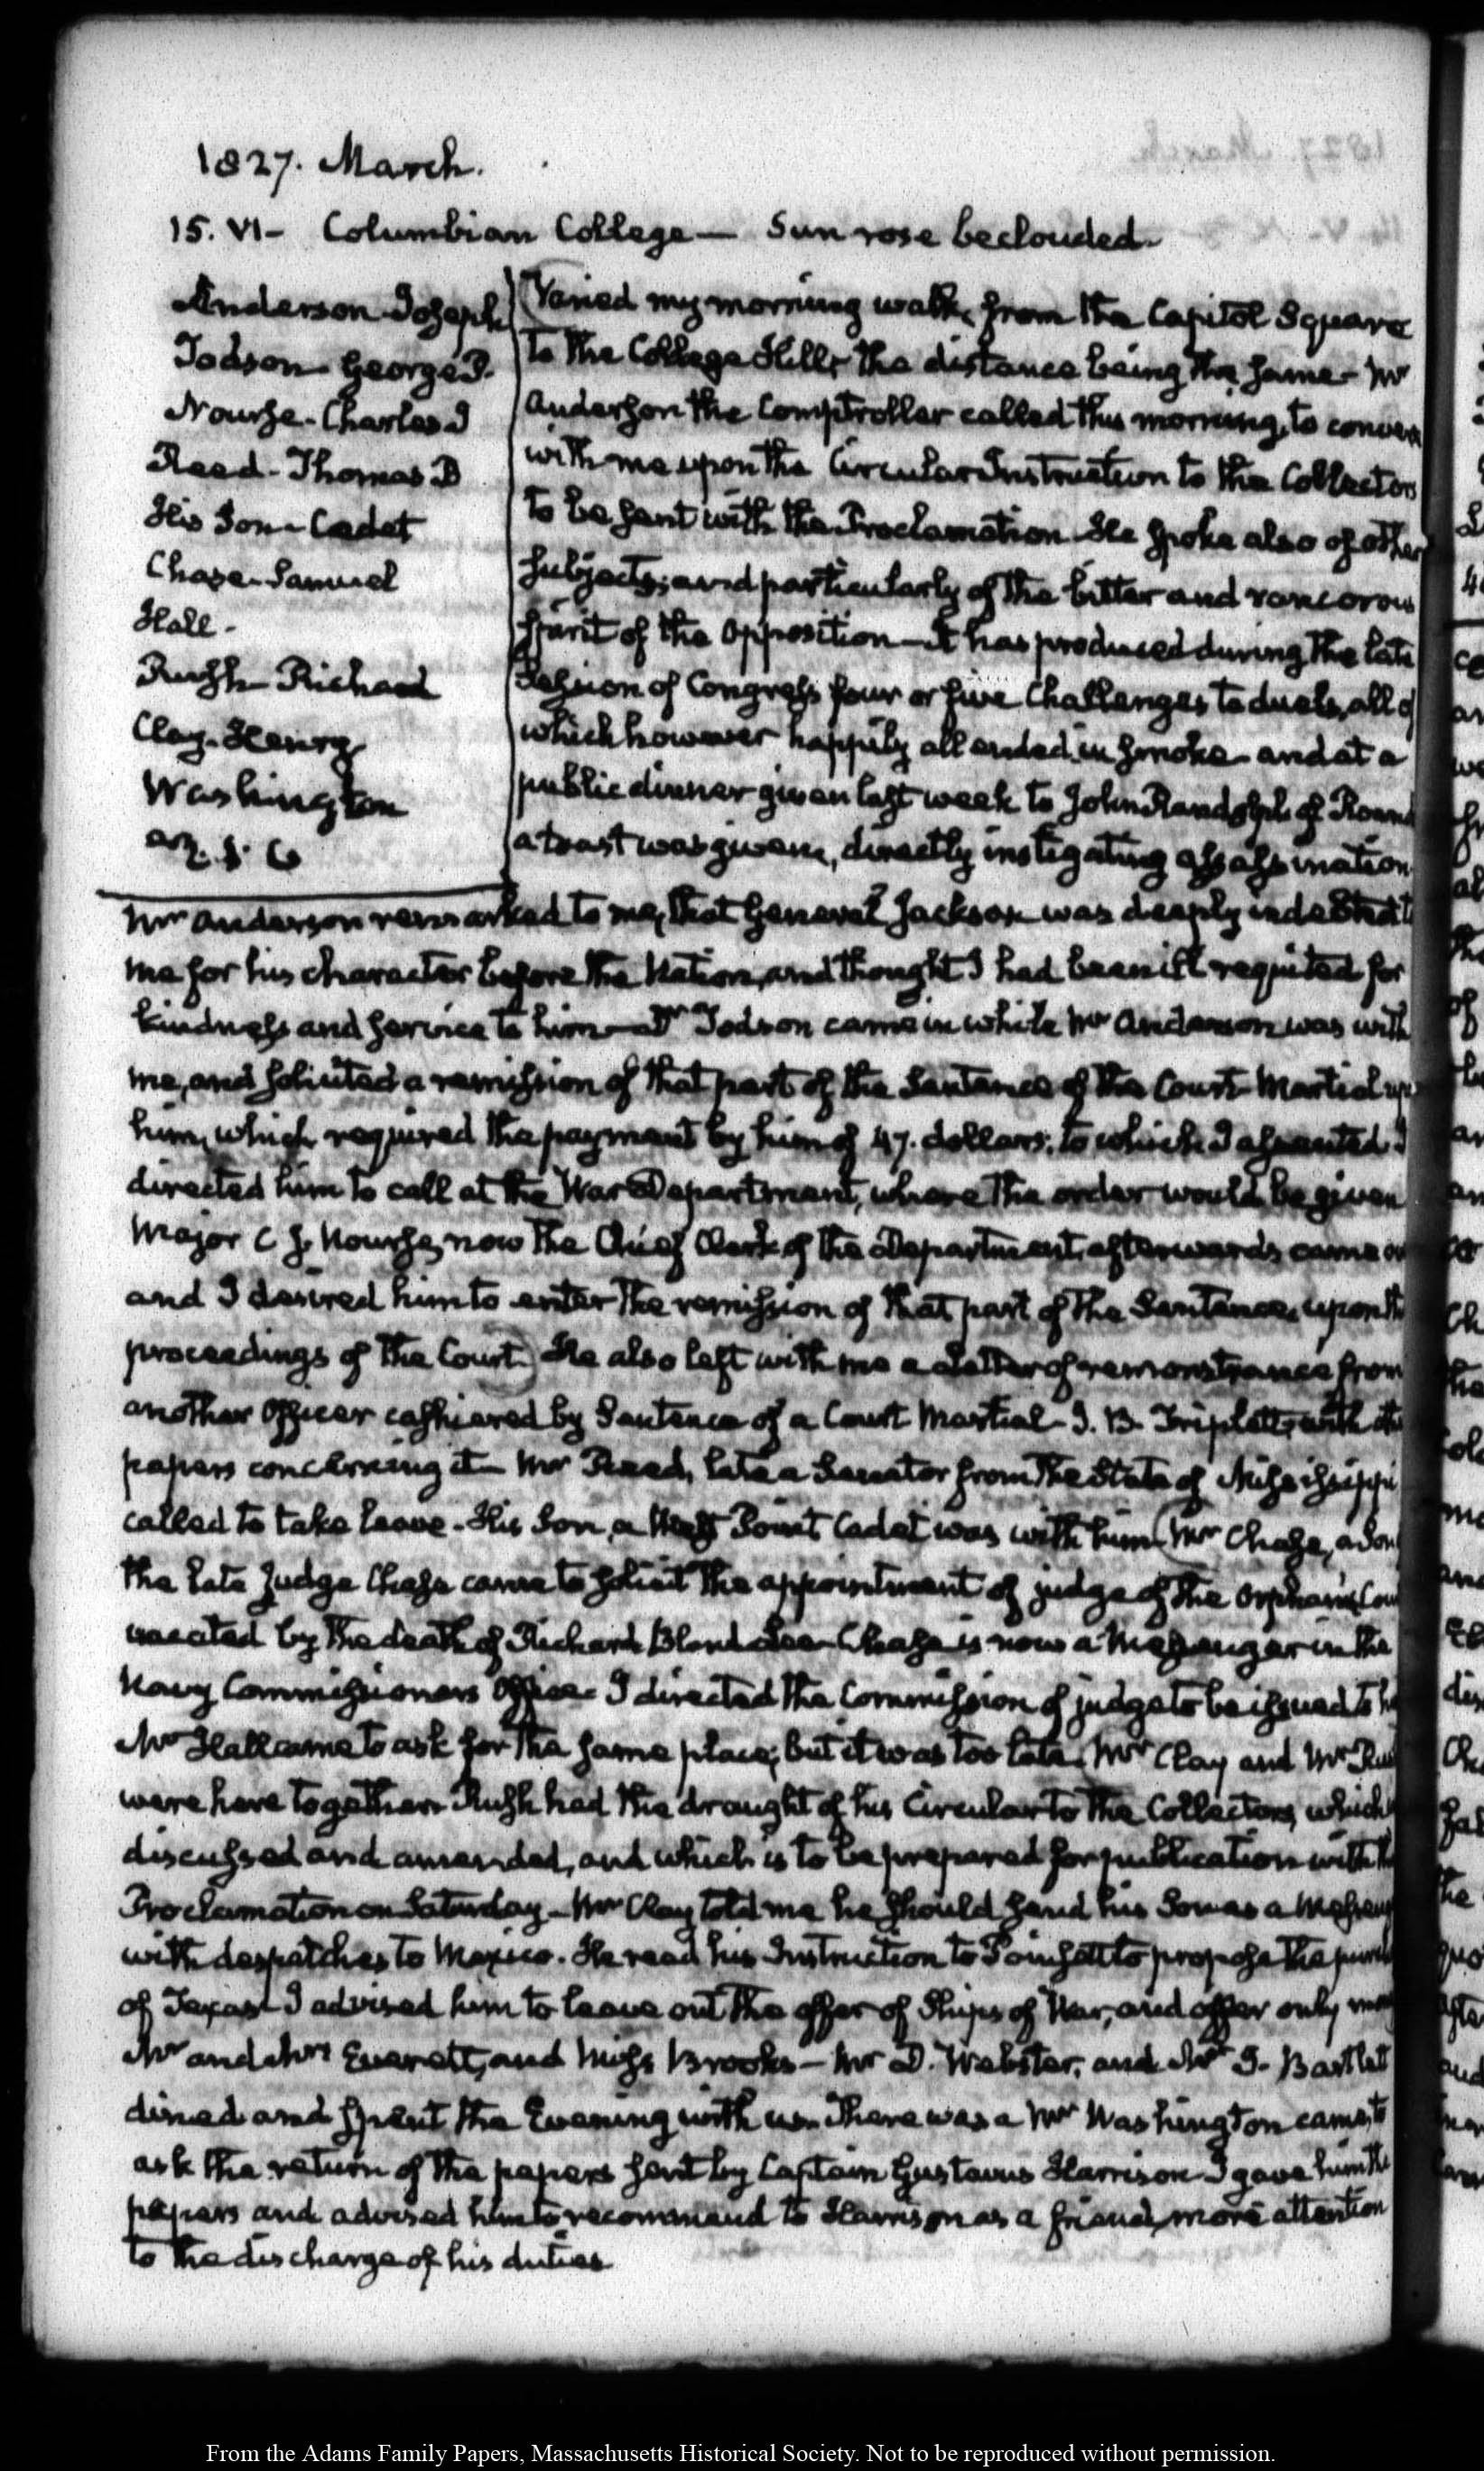 1827. March.
15. VI- Columbian College— Sun rose beclouded-
Anderson Joseph
Todson George P.
Nourse- Charles J
Reed- Thomas B
His Son- Cadet
Chase- Samuel
Hall-
Rush- Richard
Clay- Henry
Washington
Varied my morning walk, from the Capitol Square
to the College Hill, the distance being the same- Mr
Anderson the Comptroller called this morning, to converse
with me upon the Circular Instruction to the Collectors
to be sent with the Proclamation- He spoke also of other
subjects; and particularly of the bitter and rancorous
spirit of the Opposition— It has produced during the late
Session of Congress four or five Challenges to duels, all of
which however happily all ended in smoke- and at a
public dinner given last week to John Randolph of Roan
a toast was given, directly instigating assassination
Mr Anderson remarked to me, that General Jackson was deeply indebted to
me for his character before the Nation, and thought I had been ill requited for
kindness and service to him— Dr Todson came in while Mr Anderson was with
me, and solicited a remission of that part of the Sentence of the Court-Martial up
him, which required the payment by him of 47. dollars: to which I assented. I
directed him to call at the War Department, where the order would be given
Major C. J. Nourse, now the Chief Clerk of the Department, afterwards came
and I desired him to enter the remission of that part of the Sentence, upon the
proceedings of the Court. He also left with me a Letter of remonstrance from
another Officer cashiered by Sentence of a Court Martial- J. B. Triplett, with
papers concerning it— Mr Reed, late a Senator from the State of Mississippi
called to take leave- His Son, a West Point Cadet was with him (Mr Chase, a Son
the late Judge Chase came to solicit the appointment of judge of the Orphan's Cou
vacated by the death of Richard Bland Lee- Chase is now a Messenger in the
Navy Commissioners Office- I directed the Commission of judge to be issued to
Mr Hall came to ask for the same place; but it was too late. Mr Clay and Mr Rus
were here together. Rush had the draught of his Circular to the Collectors, which
discussed and amended, and which is to be prepared for publication with the
Proclamation on Saturday- Mr Clay told me he should send his Son as a Messen
with despatches to Mexico. He read his Instruction to Poinsett to propose the
of Texas- I advised him to leave out the offer of Ships of War, and offer only
Mr and Mrs Everett, and Miss Brooks— Mr D. Webster, and Mr I. Bartlett
dined and spent the Evening with us. There was a Mr Washington came to
ask the return of the papers sent by Captain Gustavus Harrison- I gave him the
papers and advised him to recommend to Harrison as a friend, more attention
to the discharge of his duties
From the Adams Family Papers, Massachusetts Historical Society. Not to be reproduced without permission.